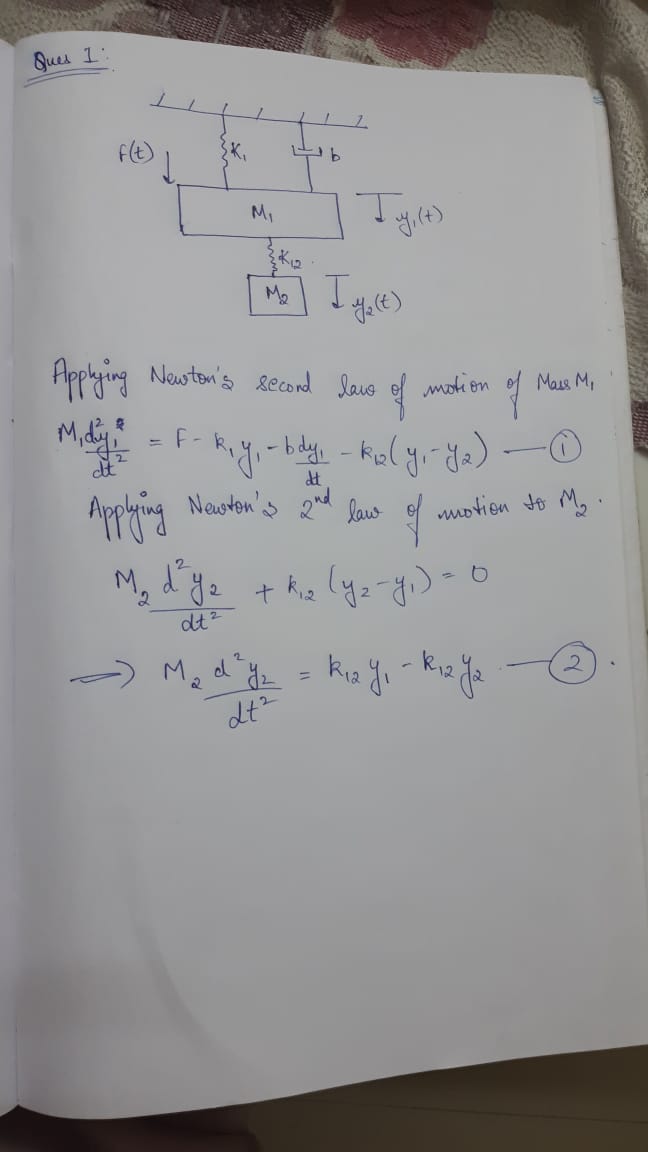 Ques 1:
F(t)
K₁
b
M₁
y₁(t)
K₁₂
M₂
y₂(t)
Applying Newton's second law of motion of Mass M₁
M₁d²y₁/dt² = F - k₁y₁ - bdy₁/dt - k₁₂(y₁-y₂) — ①
Applying Newton's 2nd law of motion to M₂.
M₂ d²y₂/dt² + k₁₂ (y₂-y₁) = 0
⟹ M₂ d²y₂/dt² = k₁₂y₁ - k₁₂y₂ — ②.